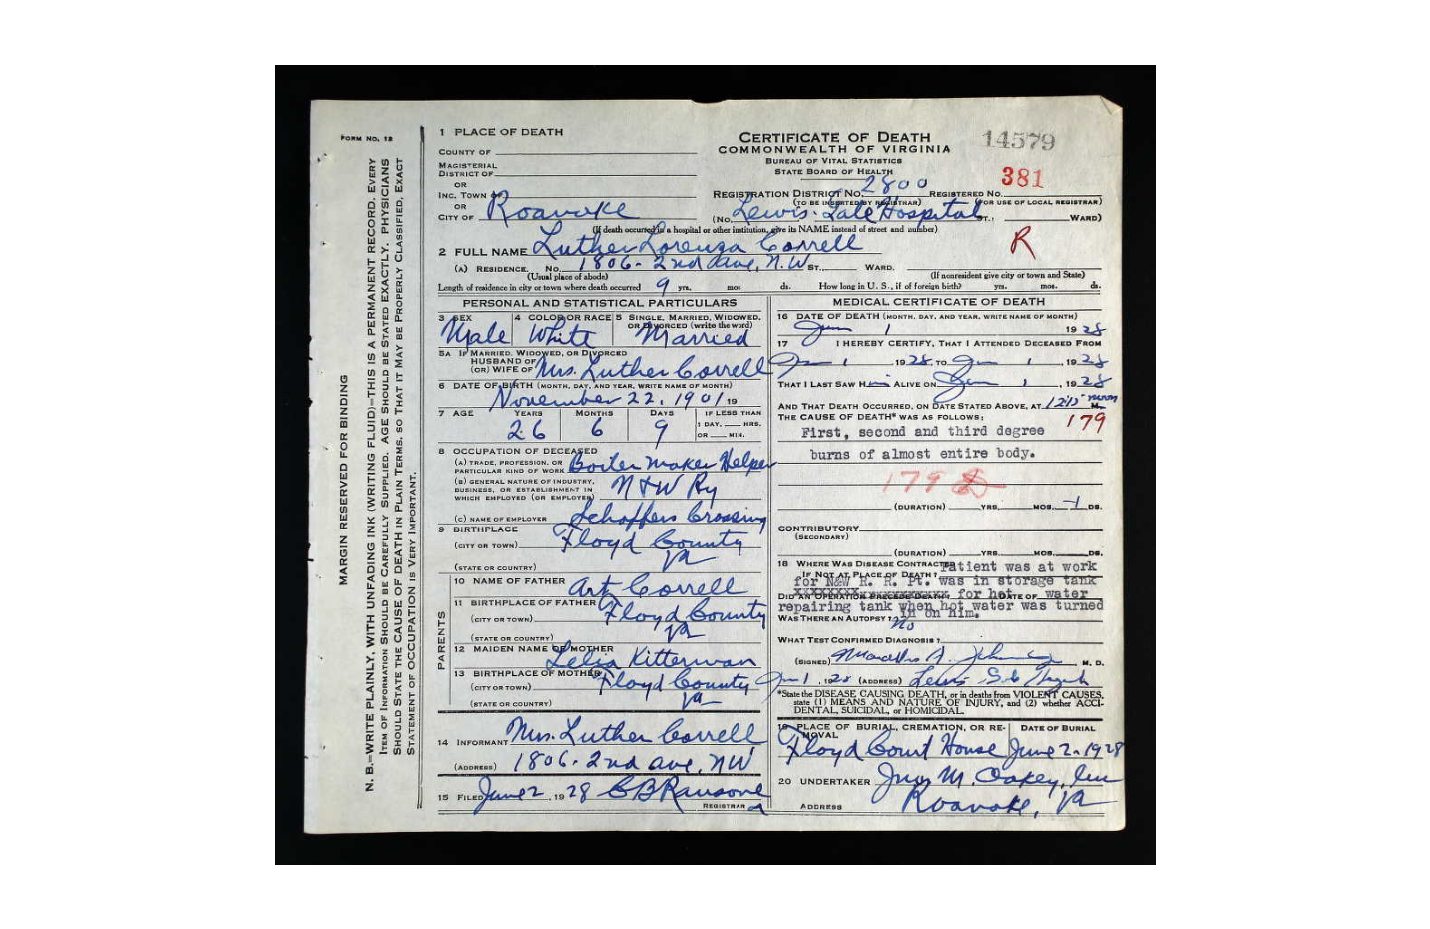 FORM NO. 12
MARGIN RESERVED FOR BINDING
N. B.—WRITE PLAINLY, WITH UNFADING INK (WRITING FLUID)—THIS IS A PERMANENT RECORD. EVERY
ITEM OF INFORMATION SHOULD BE CAREFULLY SUPPLIED. AGE SHOULD BE STATED EXACTLY. PHYSICIANS
SHOULD STATE THE CAUSE OF DEATH IN PLAIN TERMS, SO THAT IT MAY BE PROPERLY CLASSIFIED. EXACT
STATEMENT OF OCCUPATION IS VERY IMPORTANT.
1 PLACE OF DEATH
COUNTY OF
MAGISTERIAL
DISTRICT OF
OR
INC. TOWN OF
OR
CITY OF Roanoke
CERTIFICATE OF DEATH
COMMONWEALTH OF VIRGINIA
BUREAU OF VITAL STATISTICS
STATE BOARD OF HEALTH
14579
381
REGISTRATION DISTRICT NO. 2800 REGISTERED NO.
(TO BE INSERTED BY REGISTRAR) (FOR USE OF LOCAL REGISTRAR)
(No. Lewis-Gale Hospital ST., WARD)
(If death occurred in a hospital or other institution, give its NAME instead of street and number)
2 FULL NAME Luther Lorenza Correll
R
(A) RESIDENCE. No. 1806-2nd ave, N.W ST., WARD.
(Usual place of abode) (If nonresident give city or town and State)
Length of residence in city or town where death occurred 9 yrs. mos. ds. How long in U. S., if of foreign birth? yrs. mos. ds.
PERSONAL AND STATISTICAL PARTICULARS
3 SEX 4 COLOR OR RACE 5 SINGLE, MARRIED, WIDOWED, OR DIVORCED (write the word)
Male White Married
5A IF MARRIED, WIDOWED, OR DIVORCED
HUSBAND OF
(OR) WIFE OF Mrs. Luther Correll
6 DATE OF BIRTH (MONTH, DAY, AND YEAR, WRITE NAME OF MONTH)
November 22, 1901 19
7 AGE YEARS MONTHS DAYS IF LESS THAN
1 DAY, HRS.
OR MIN.
26 6 9
8 OCCUPATION OF DECEASED
(A) TRADE, PROFESSION, OR
PARTICULAR KIND OF WORK Boiler Maker Helper
(B) GENERAL NATURE OF INDUSTRY,
BUSINESS, OR ESTABLISHMENT IN
WHICH EMPLOYED (OR EMPLOYER) N & W Ry
(C) NAME OF EMPLOYER Schaffers Crossing
9 BIRTHPLACE
(CITY OR TOWN) Floyd County
(STATE OR COUNTRY) Va
PARENTS
10 NAME OF FATHER Art Correll
11 BIRTHPLACE OF FATHER
(CITY OR TOWN) Floyd County
(STATE OR COUNTRY) Va
12 MAIDEN NAME OF MOTHER Lelia Kitterman
13 BIRTHPLACE OF MOTHER
(CITY OR TOWN) Floyd County
(STATE OR COUNTRY) Va
14 INFORMANT Mrs. Luther Correll
(ADDRESS) 1806-2nd ave, NW
15 FILED June 2, 1928 C B Ransone
REGISTRAR
MEDICAL CERTIFICATE OF DEATH
16 DATE OF DEATH (MONTH, DAY, AND YEAR, WRITE NAME OF MONTH)
June 1 1928
17 I HEREBY CERTIFY, THAT I ATTENDED DECEASED FROM
June 1, 1928, TO June 1, 1928
THAT I LAST SAW HIM ALIVE ON June 1, 1928
AND THAT DEATH OCCURRED, ON DATE STATED ABOVE, AT M.
THE CAUSE OF DEATH* WAS AS FOLLOWS: 179
First, second and third degree
burns of almost entire body.
179
(DURATION) YRS. MOS. 1 DS.
CONTRIBUTORY
(SECONDARY)
(DURATION) YRS. MOS. DS.
18 WHERE WAS DISEASE CONTRACTED
IF NOT AT PLACE OF DEATH? Patient was at work
for N&W R. R. Pt. was in storage tank
DID AN OPERATION PRECEDE DEATH? for hot DATE OF water
repairing tank when hot water was turned
in on him.
WAS THERE AN AUTOPSY? no
WHAT TEST CONFIRMED DIAGNOSIS?
(SIGNED) M. D.
June 1, 1928 (ADDRESS) Lewis
*State the DISEASE CAUSING DEATH, or in deaths from VIOLENT CAUSES, state (1) MEANS AND NATURE OF INJURY, and (2) whether ACCIDENTAL, SUICIDAL, or HOMICIDAL.
19 PLACE OF BURIAL, CREMATION, OR REMOVAL DATE OF BURIAL
Floyd Court House June 2-1928
20 UNDERTAKER Jno M. Oakey, Inc
ADDRESS Roanoke, Va